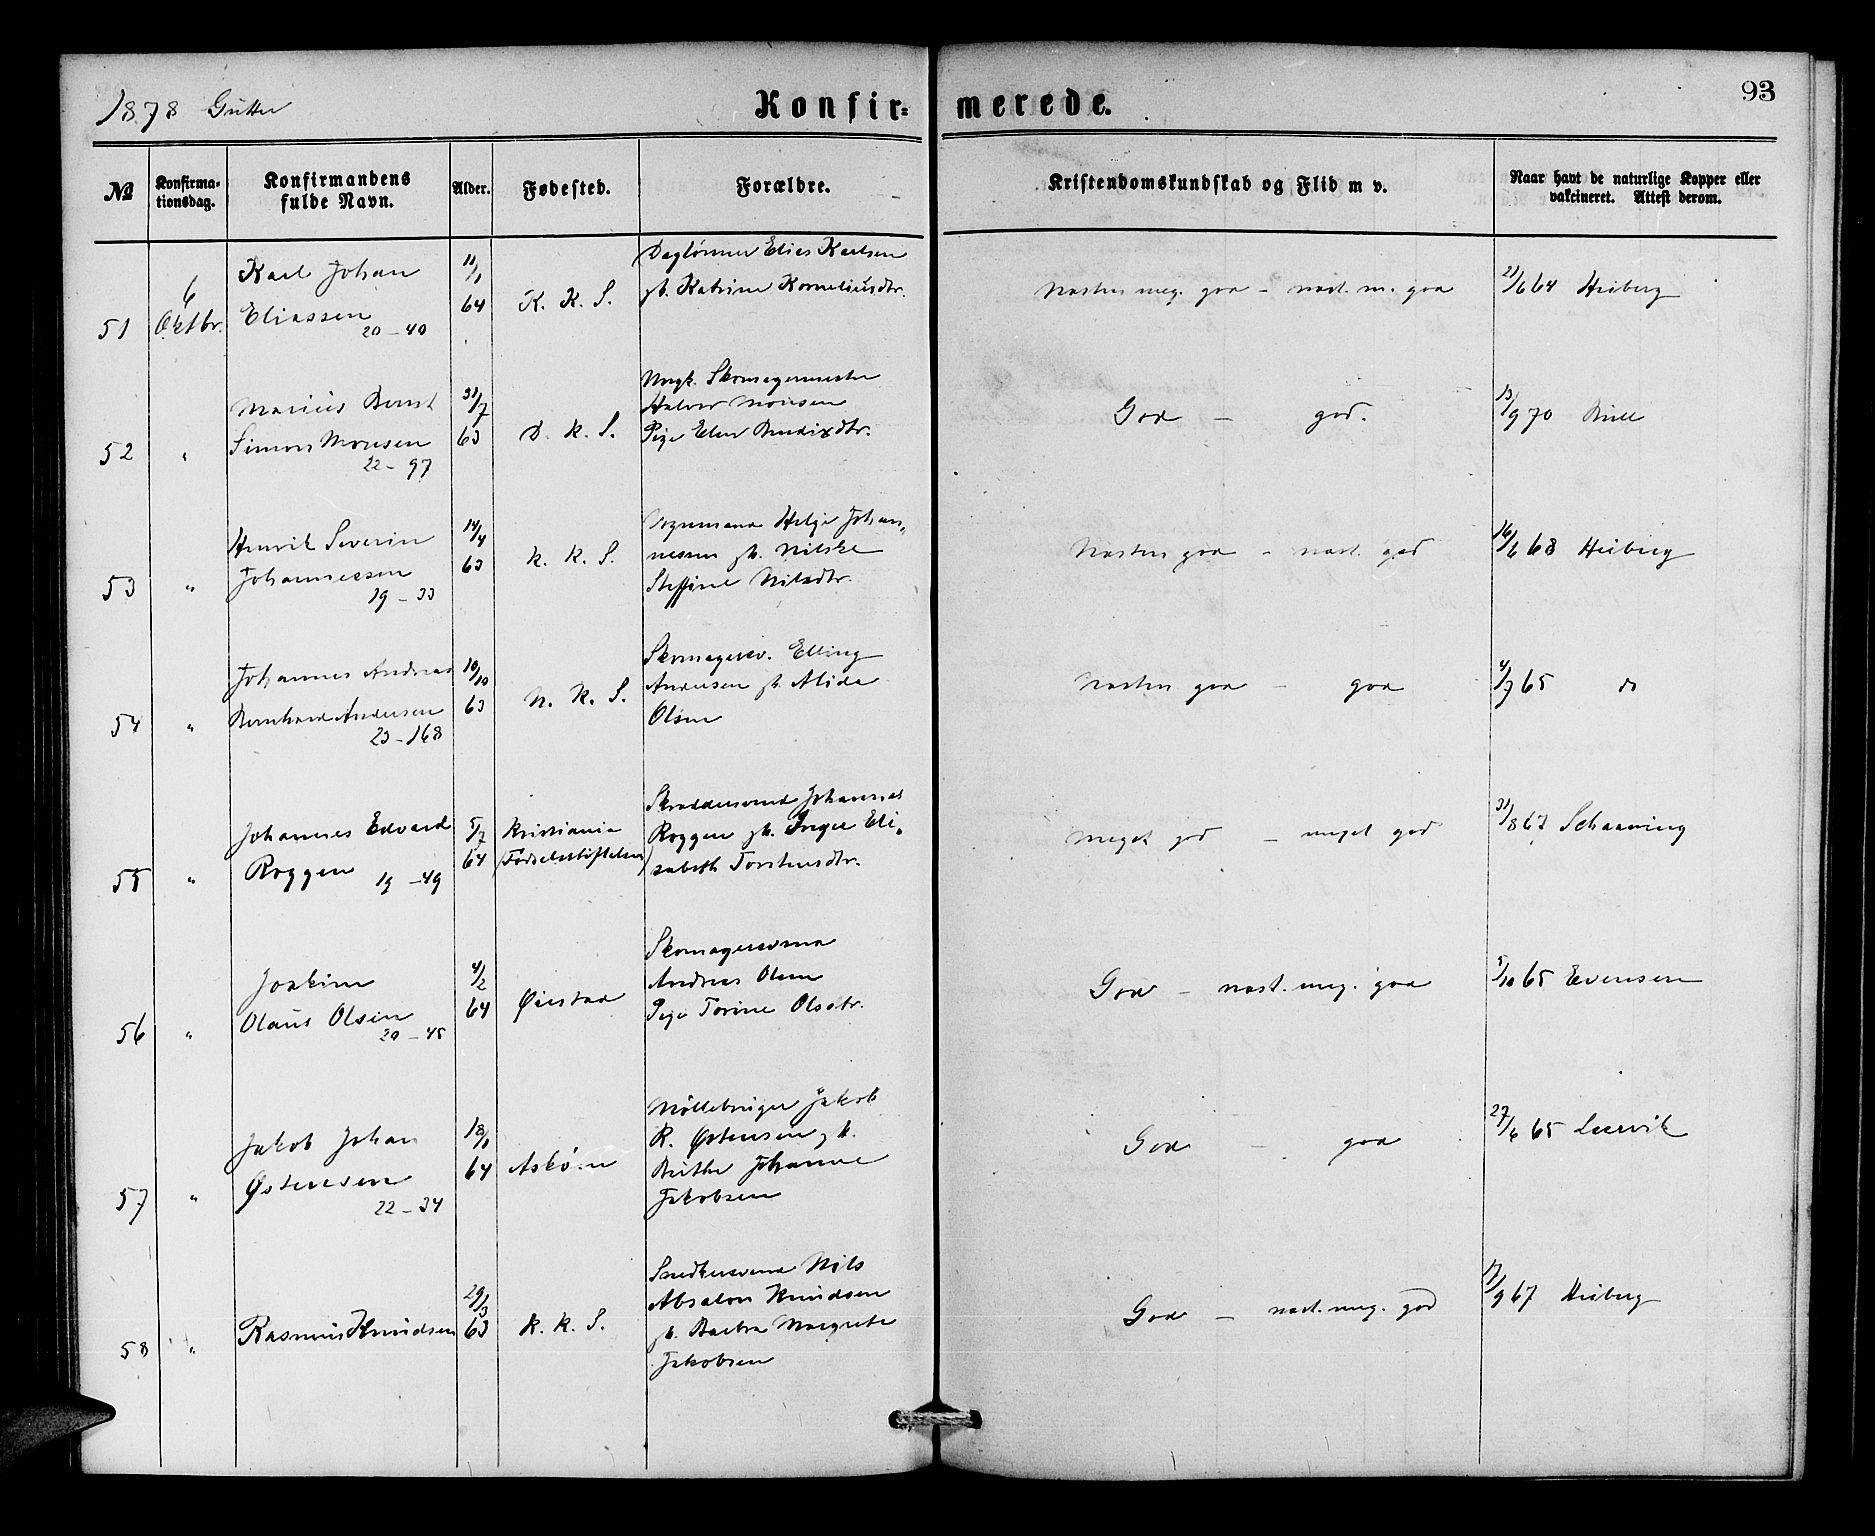 1878 Gutter
Konfirmerede.
93
№
Konfirmationsdag.
Konfirmandens fulde Navn.
Alder.
Fødested.
Forældre.
Kristendomskundskab og Flid m v.
Naar havt de naturlige Kopper eller vakcineret. Attest derom.
51
6 Oktbr.
Karl Johan
Eliassen
20-40
11/1
64
K. K. S.
Daglønner Elias Karlsen
gb. Katrine Korneliusdtr.
Næsten meg. god - næst. m. god
21/6 64 Heiberg
52
"
Marius Bernt
Simon Monsen
22-97
31/7
63
D. K. S.
Ungk. Skomagermester
Halvor Monsen
Pige Elen Bendixdtr.
God - god.
13/9 70
53
"
Henrik Severin
Johannessen
19-33
14/4
63
K. K. S.
Vognmand Helge Johan-
nessen gb. Nilske
Steffine Nilsdtr.
Næsten god - næst. god
16/6 68 Heiberg
54
"
Johannes Andreas
Bernhard Andersen
23-168
10/10
63
N. K. S.
Skomagersv. Elling
Andersen gb. Alida
Olsen
Næsten god - god
4/9 65 do
55
"
Johannes Edvard
Roggen
19-49
5/7
64
Kristiania
(Fødselsstiftelsen)
Skræddersvend Johannes
Roggen gb. Inger Eli-
sabeth Torstensdtr.
Meget god - meget god
31/8 67 Schaanning
56
"
Joakim
Olaus Olsen
20-45
4/2
64
Øiestad
Skomagersvend
Andreas Olsen
Pige Torine Olsdtr.
God - næst. meg. god
5/10 65 Evensen
57
"
Jakob Johan
Østensen
22-34
18/1
64
Askøen
Møllebruger Jakob
R. Østensen gb.
Berthe Johanne
Jakobsen
God - god
27/6 65 Leervik
58
"
Rasmus Knudsen
29/3
63
K. K. S.
Snedkersvend Nils
Absalon Knudsen
gb. Barbra Margrete
Jakobsen
God - næst. meg. god
17/9 67 Heiberg